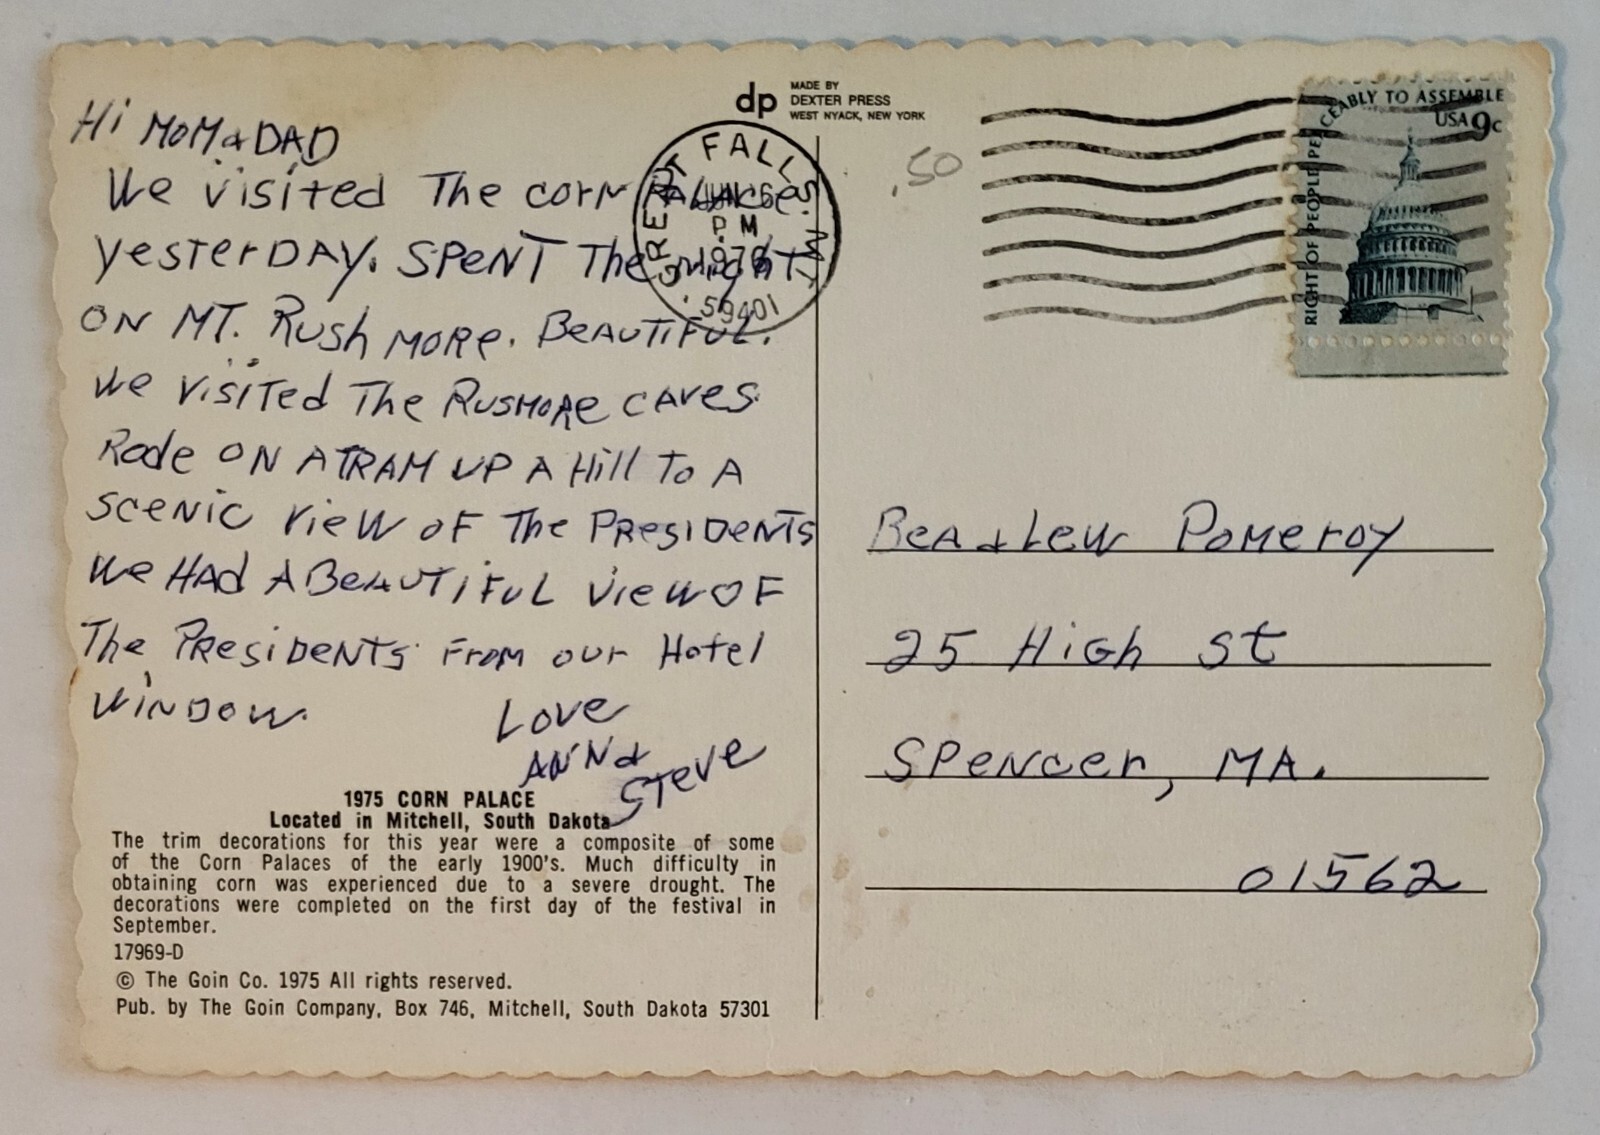 Hi MOM & DAD
We visited The corn PALACE
yesterDAY. SPENT The night
ON MT. Rush MORE. BeAUTIFUL.
We visiTed The RUSMORe CAVES
Rode ON A TRAM UP A Hill To A
Scenic View OF The PResiDeNTs
We HAd A BeAUTiFuL View OF
The PResiDeNTs FROM our Hotel
WiNDOW.
Love
ANN &
STeve
1975 CORN PALACE
Located in Mitchell, South Dakota
The trim decorations for this year were a composite of some
of the Corn Palaces of the early 1900's. Much difficulty in
obtaining corn was experienced due to a severe drought. The
decorations were completed on the first day of the festival in
September.
17969-D
© The Goin Co. 1975 All rights reserved.
Pub. by The Goin Company, Box 746, Mitchell, South Dakota 57301
dp
MADE BY
DEXTER PRESS
WEST NYACK, NEW YORK
GREAT FALLS, MT
JUN 6
PM
59401
.50
RIGHT OF PEOPLE PEACEABLY TO ASSEMBLE
USA 9c
BeA & Lew PoMeroy
25 HiGh St
SPeNcer, MA.
01562